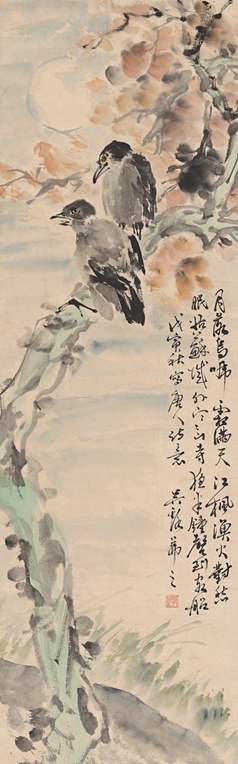 月落烏啼霜滿天江楓漁火對愁
眠姑蘇城外寒山寺夜半鐘聲到客船
戊寅秋寫唐人詩意
吳谿茀之